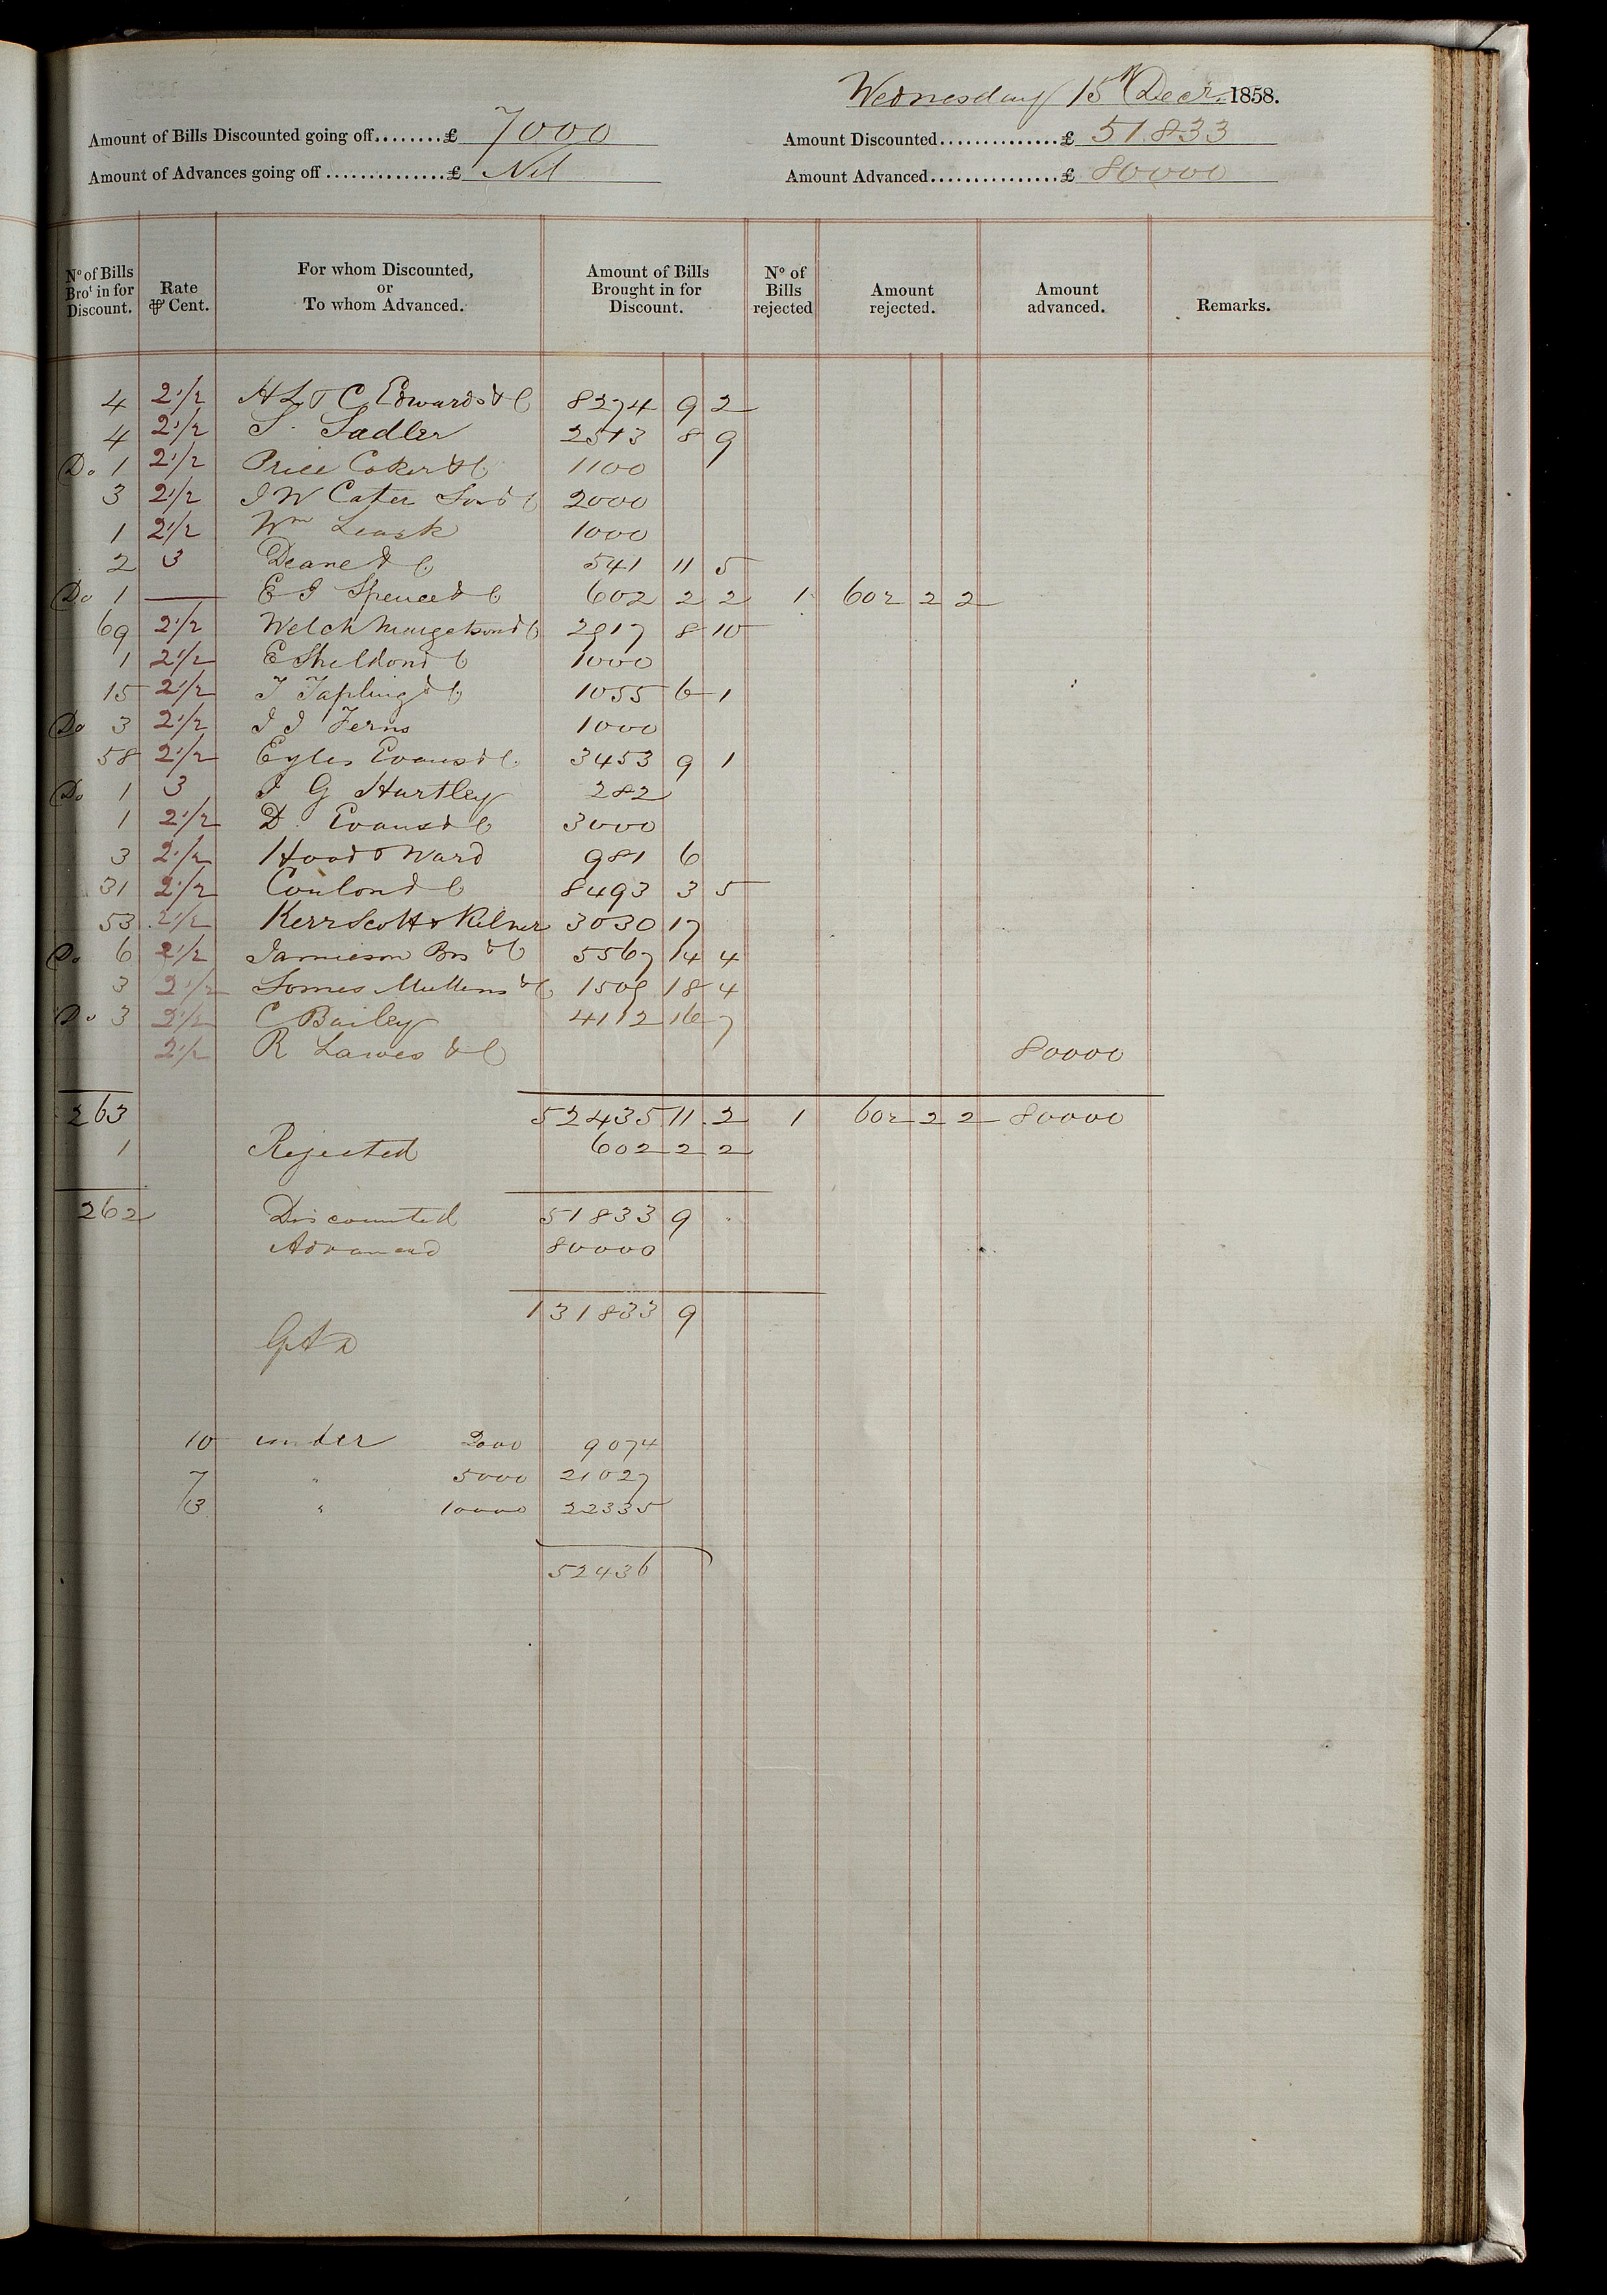 Wednesday 15th Decr. 1858.
Amount of Bills Discounted going off........£ 7000 Amount Discounted..............£ 51833
Amount of Advances going off..............£ Nil Amount Advanced...............£ 80000
No of Bills Brot in for Discount. Rate ⅌ Cent. For whom Discounted, or To whom Advanced. Amount of Bills Brought in for Discount. No of Bills rejected Amount rejected. Amount advanced. Remarks.
4 2 1/2 H L & C Edwards & C 8274 9 2
4 2 1/2 S. Sadler 2513 8 9
Do 1 2 1/2 Price Coker & C 1100
3 2 1/2 J W Cater Son & C 2000
1 2 1/2 Wm Leask 1000
2 3 Deane & C 541 11 5
Do 1 — E J Spence & C 602 2 2 1 602 2 2
69 2 1/2 Welch Margetson & C 2917 8 10
1 2 1/2 E Sheldon & C 1000
15 2 1/2 T Tapling & C 1055 6 1
Do 3 2 1/2 J J Ferns 1000
58 2 1/2 Eyles Evans & C. 3453 9 1
Do 1 3 J G Hartley 282
1 2 1/2 D. Evans & C 3000
3 2 1/2 Hood & Ward 981 6
31 2 1/2 Coulon & C 8493 3 5
53 2 1/2 Kerr Scott & Kilner 3030 17
Do 6 2 1/2 Jamieson Bros & C 5567 14 4
3 2 1/2 Somes Mullens & C 1509 18 4
Do 3 2 1/2 C Bailey 4112 16 7
2 1/2 R Lawes & C 80000
263 52435 11 2 1 602 2 2 80000
1 Rejected 602 2 2
262 Discounted 51833 9 .
Advanced 80000
131833 9
10 under 2000 9074
7 " 5000 21027
3 " 10000 22335
52436